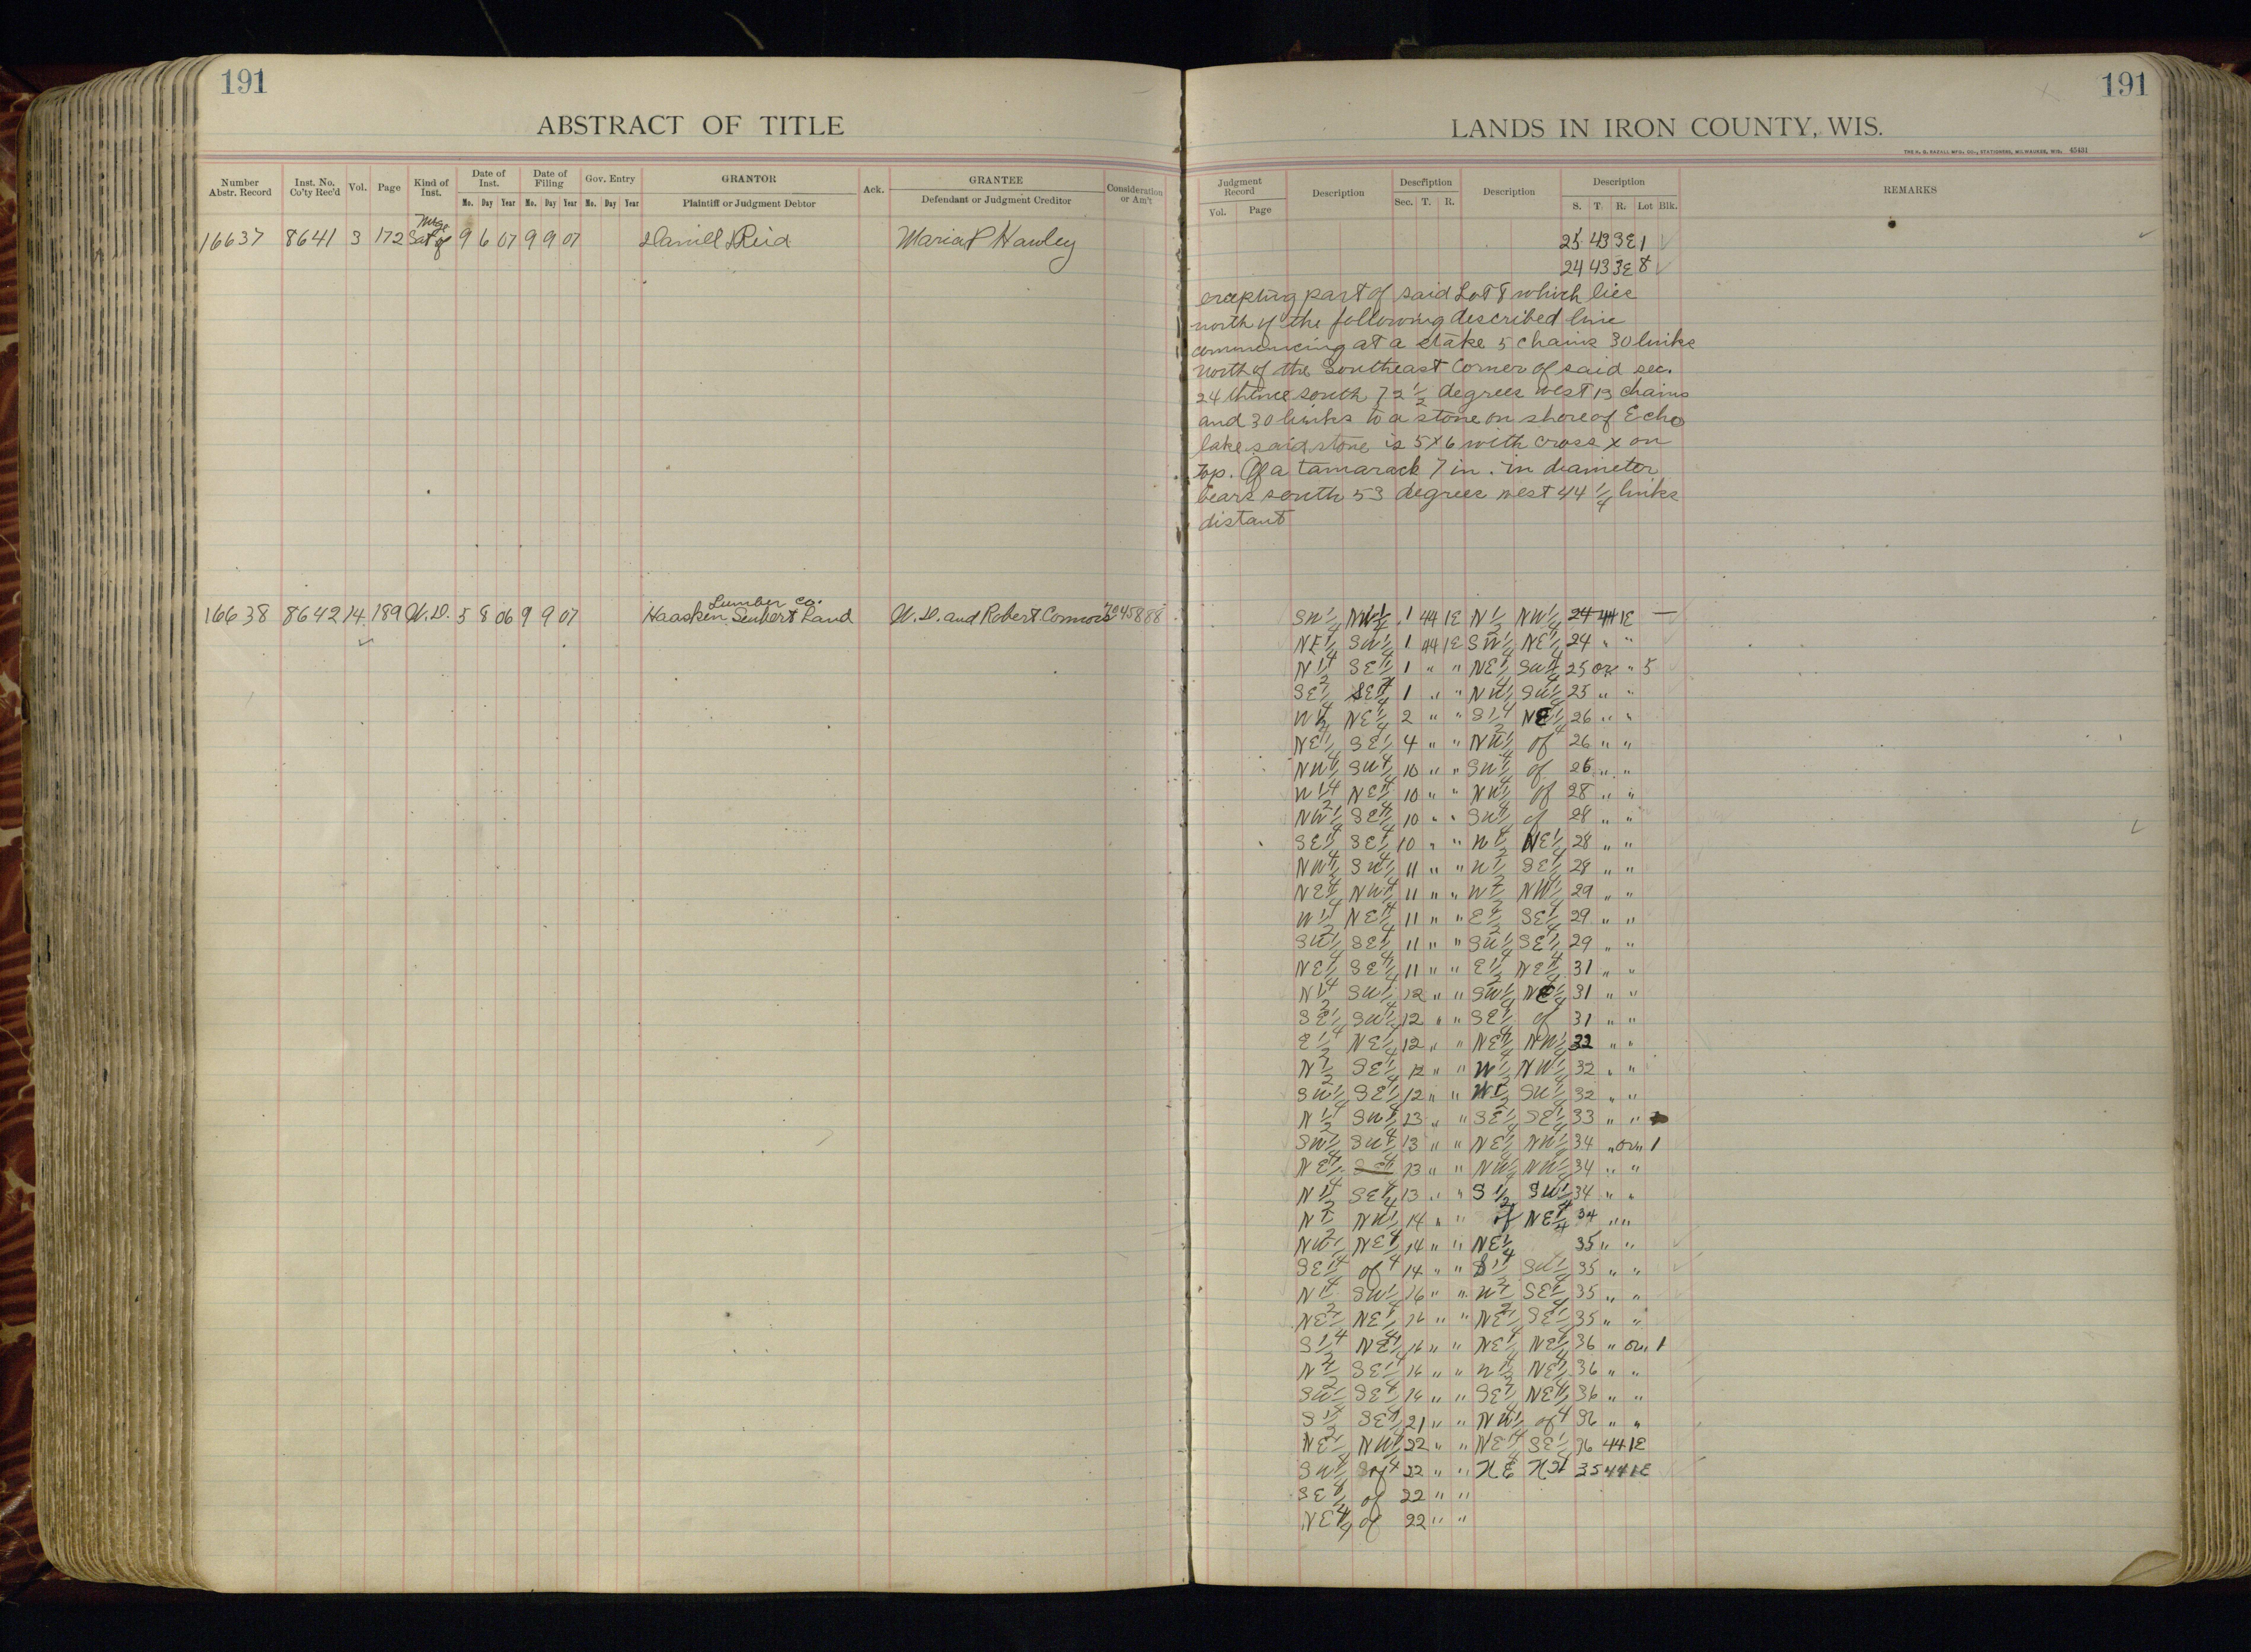 191
ABSTRACT OF TITLE
Number Abstr. Record Inst. No. Co'ty Rec'd Vol. Page Kind of Inst. Date of Inst. Date of Filing Gov. Entry GRANTOR Ack. GRANTEE Consideration or Am't
Mo. Day Year Mo. Day Year Mo. Day Year Plaintiff or Judgment Debtor Defendant or Judgment Creditor
Mtge
16637 8641 3 172 Sat of 9 6 07 9 9 07 Reid Maria P Hawley
Lumber Co.
16638 8642 14 189 W.D. 5 8 06 9 9 07 Haasken Seubert Land W.D. and Robert Connors
191
LANDS IN IRON COUNTY, WIS.
THE H. G. RAZALL MFG. CO., STATIONERS, MILWAUKEE, WIS. 45431
Judgment Record Description Description Description Description REMARKS
Vol. Page Sec. T. R. S. T. R. Lot Blk.
25 43 3E 1
24 43 3E 8
excepting part of said Lot 8 which lies
north of the following described line
commencing at a stake 5 chains 30 links
north of the Southeast Corner of said sec.
24 thence south 72 1/2 degrees west 13 chains
and 30 links to a stone on shore of Echo
lake said stone is 5x6 with cross x on
top. Of a tamarack 7 in. in diameter
bears south 53 degrees west 44 1/4 links
distant
SW1/4 NW1/4 1 44 1E N1/2 NW1/4 24 44 1E
NE1/4 SW1/4 1 44 1E SW1/4 NE1/4 24 " "
N1/2 SE1/4 1 " " NE1/4 SW1/4 25 or " 5
SE1/4 SE1/4 1 " " NW1/4 SW1/4 25 " "
W1/2 NE1/4 2 " " S1/2 NE1/4 26 " "
NE1/4 SE1/4 4 " " NW1/4 of 26 " "
NW1/4 SW1/4 10 " " SW1/4 of 26 " "
W1/2 NE1/4 10 " " NW1/4 of 28 " "
NW1/4 SE1/4 10 " " SW1/4 of 28 " "
SE1/4 SE1/4 10 " " W1/2 NE1/4 28 " "
NW1/4 SW1/4 11 " " W1/2 SE1/4 28 " "
NE1/4 NW1/4 11 " " W1/2 NW1/4 29 " "
W1/2 NE1/4 11 " " E1/2 SE1/4 29 " "
SW1/4 SE1/4 11 " " SW1/4 SE1/4 29 " "
NE1/4 SE1/4 11 " " E1/2 NE1/4 31 " "
N1/2 SW1/4 12 " " SW1/4 NE1/4 31 " "
SE1/4 SW1/4 12 " " SE1/4 of 31 " "
E1/2 NE1/4 12 " " NE1/4 NW1/4 32 " "
N1/2 SE1/4 12 " " W1/2 NW1/4 32 " "
SW1/4 SE1/4 12 " " W1/2 SW1/4 32 " "
N1/2 SW1/4 13 " " SE1/4 SE1/4 33 " "
SW1/4 SW1/4 13 " " NE1/4 NW1/4 34 " or " 1
NE1/4 13 " " NW1/4 NW1/4 34 " "
N1/2 SE1/4 13 " " S1/2 SW1/4 34 " "
N1/2 NW1/4 14 " " of NE1/4 34 " "
NW1/4 NE1/4 14 " " NE1/4 35 " "
SE1/4 of 14 " " S1/2 SW1/4 35 " "
N1/2 SW1/4 16 " " W1/2 SE1/4 35 " "
NE1/4 NE1/4 16 " " NE1/4 SE1/4 35 " "
S1/2 NE1/4 16 " " NE1/4 NE1/4 36 " or " 1
N1/2 SE1/4 16 " " W1/2 NE1/4 36 " "
SW1/4 SE1/4 16 " " SE1/4 NE1/4 36 " "
S1/2 SE1/4 21 " " NW1/4 of 36 " "
NE1/4 NW1/4 22 " " NE1/4 SE1/4 36 44 1E
SW1/4 of 22 " " NE NW 35 44 1E
SE1/4 of 22 " "
NE1/4 of 22 " "